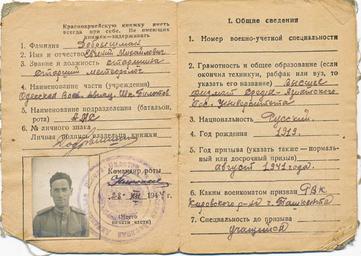 Красноармейскую книжку иметь
всегда при себе. Не имеющих
книжек-задерживать
1. Фамилия
2. Имя и отчество Евгений Михайлович
3. Звание и должность старшина
старший метеоролог
4. Наименование части (учреждения)
Одесская Воен. Авиац. Шк. Пилотов
5. Наименование подразделения (батальон,
рота)
6. № личного знака
Личная подпись владельца книжки
Командир роты
194
(Место
печати части)
I. Общие сведения
1. Номер военно-учетной специальности
2. Грамотность и общее образование (если
окончил техникум, рабфак или вуз, то
указать его название) высшее
физмат Средне-Азиатского
Гос. Университета
3. Национальность Русский.
4. Год рождения 1919.
5. Год призыва (указать также — нормаль-
ный или досрочный призыв)
август 1941 года.
6. Каким военкоматом призван РВК
Кировского р-на г. Ташкента
7. Специальность до призыва
учащийся